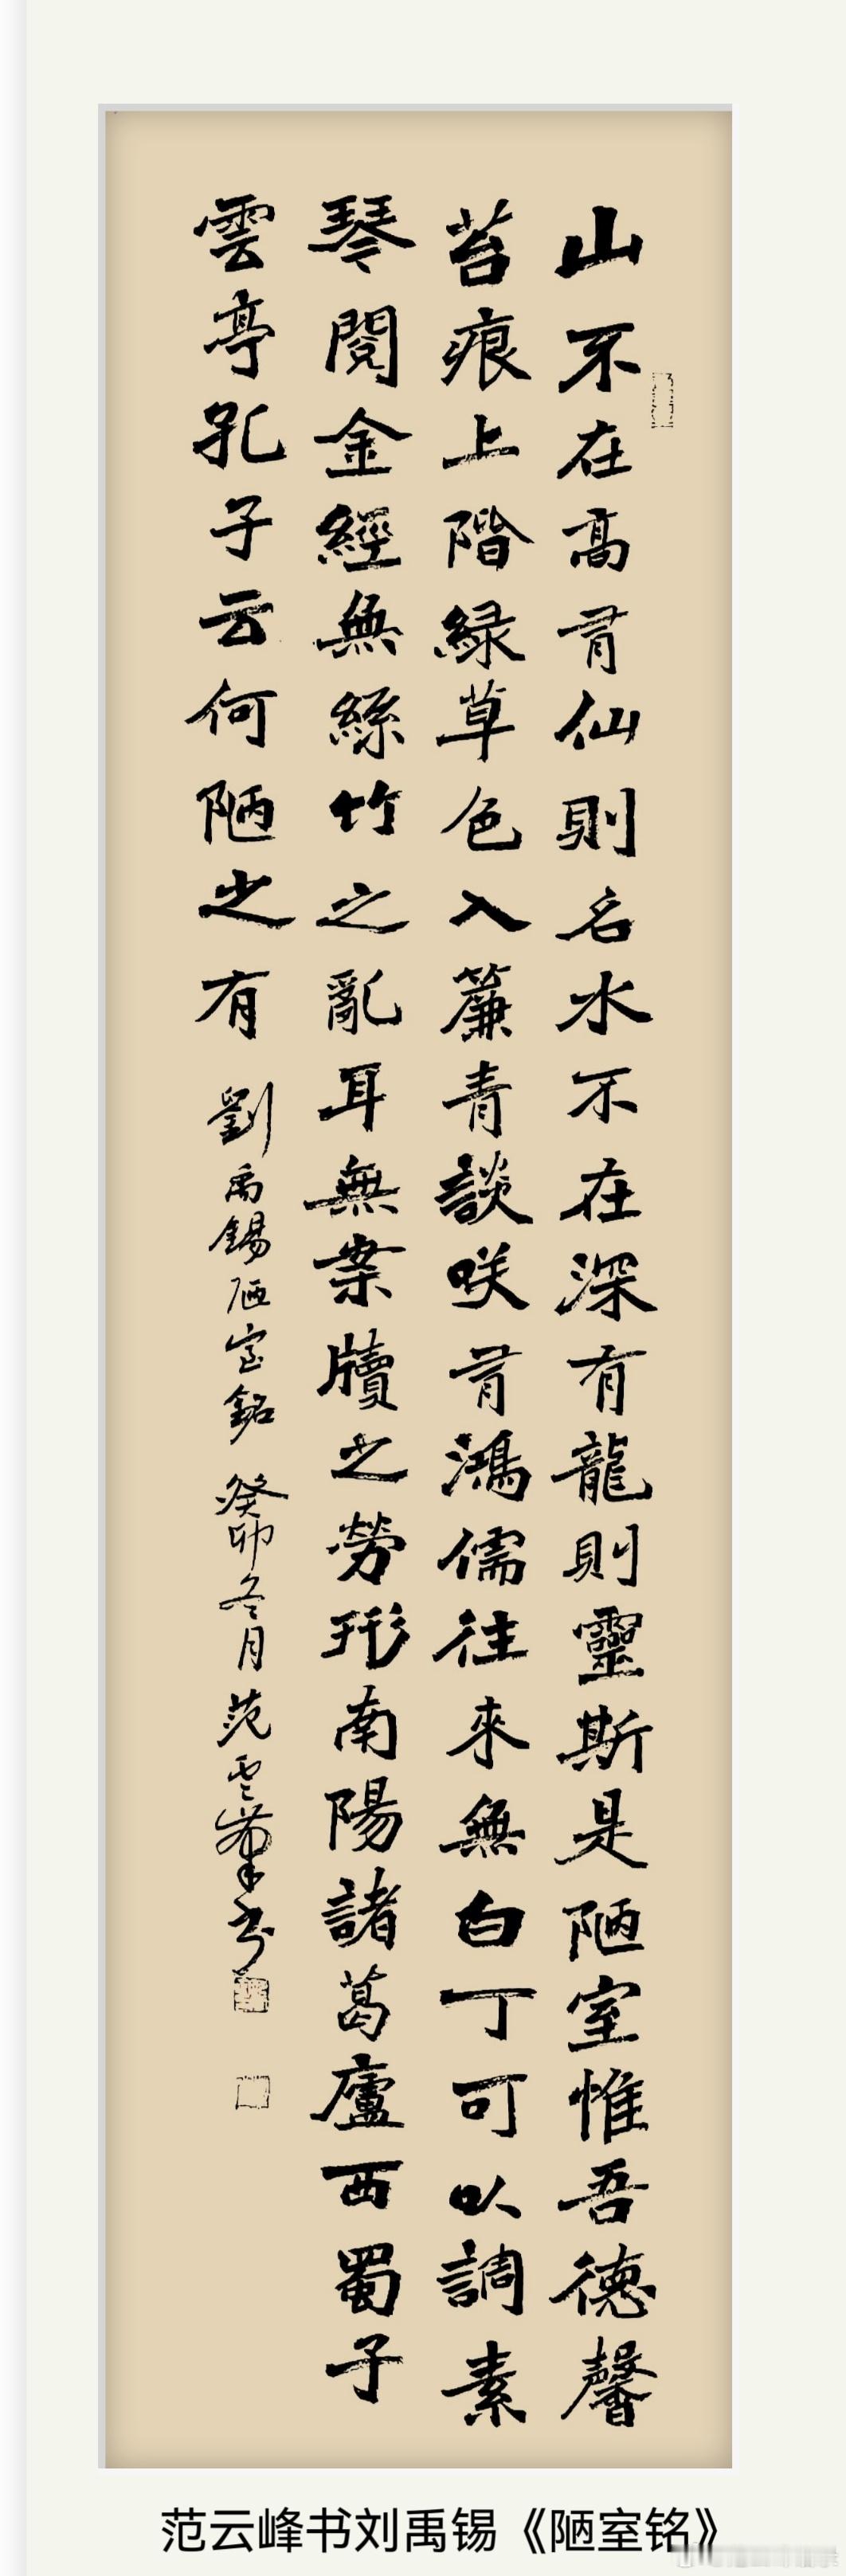 山不在高有仙則名水不在深有龍則靈斯是陋室惟吾德馨
苔痕上階緑草色入簾青談咲有鴻儒往來無白丁可以調素
琴閱金經無絲竹之亂耳無案牘之勞形南陽諸葛廬西蜀子
雲亭孔子云何陋之有 劉禹錫陋室銘 癸卯冬月范雲峯书
范云峰书刘禹锡《陋室铭》